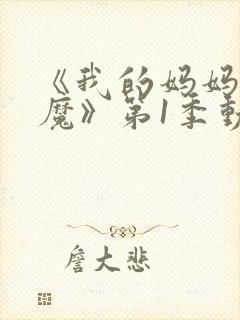 《我的妈妈
魔》第1季動
詹大悲